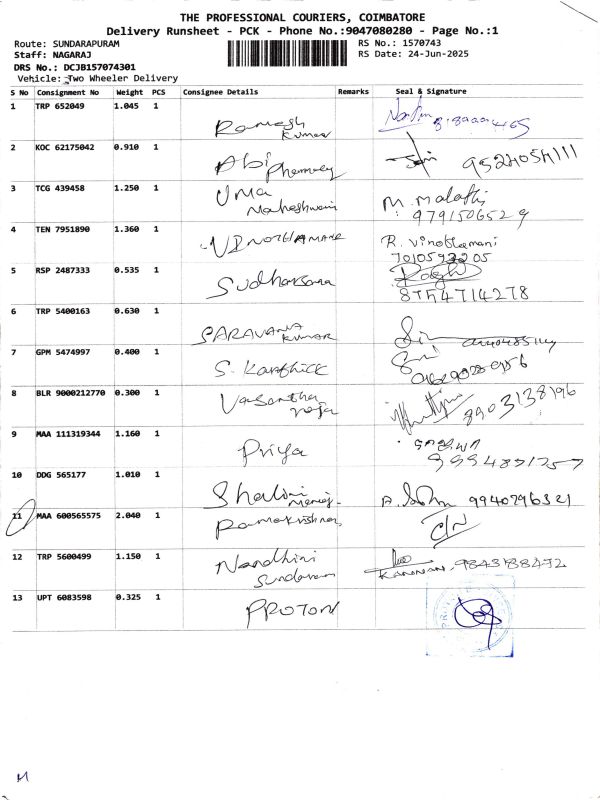 THE PROFESSIONAL COURIERS, COIMBATORE
Delivery Runsheet - PCK - Phone No.:9047080280 - Page No.:1
Route: SUNDARAPURAM
RS No.: 1570743
Staff: NAGARAJ
RS Date: 24-Jun-2025
DRS No.: DCJB157074301
Vehicle: Two Wheeler Delivery
S No Consignment No Weight PCS Consignee Details Remarks Seal & Signature
1 TRP 652049 1.045 1 Ramesh
Kumar
2 KOC 62175042 0.910 1 Abi Pharmacy 9524054111
3 TCG 439458 1.250 1 Uma M. Malathi
Maheshwari 9791506529
4 TEN 7951890 1.360 1 R. Vinothamani
7010593205
5 RSP 2487333 0.535 1 Sudharsana
8754714278
6 TRP 5400163 0.630 1 SARAVANA
KUMAR
7 GPM 5474997 0.400 1 S. Karthick
8 BLR 9000212770 0.300 1 Vasantha
roja 8903138196
9 MAA 111319344 1.160 1 Priya
9994891257
10 DDG 565177 1.010 1 Shalini 9940796321
11 MAA 600565575 2.040 1 Ramakrishnan C/N
12 TRP 5600499 1.150 1 Nandhini
Sundaram KANNAN 9843188472
13 UPT 6083598 0.325 1 PROTON